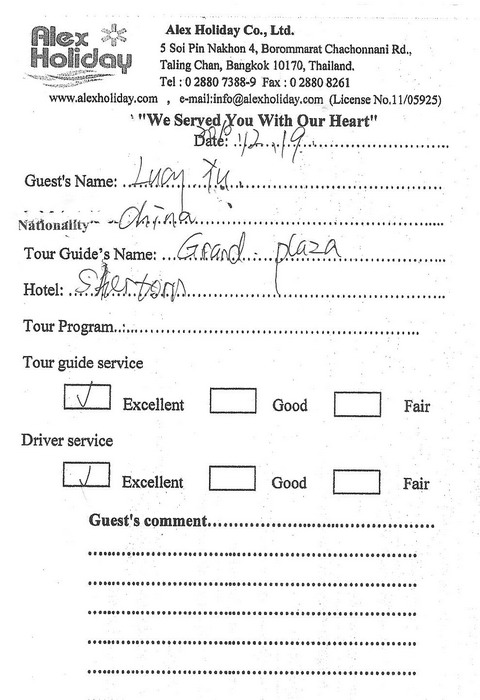 Alex
Holiday
Alex Holiday Co., Ltd.
5 Soi Pin Nakhon 4, Borommarat Chachonnani Rd.,
Taling Chan, Bangkok 10170, Thailand.
Tel : 0 2880 7388-9 Fax : 0 2880 8261
www.alexholiday.com , e-mail:info@alexholiday.com (License No.11/05925)
"We Served You With Our Heart"
Date: 12.19
Guest's Name: Lucy Xu
Nationality China
Tour Guide's Name: Grand plaza
Hotel: Shertorn
Tour Program..:
Tour guide service
✓ Excellent Good Fair
Driver service
✓ Excellent Good Fair
Guest's comment